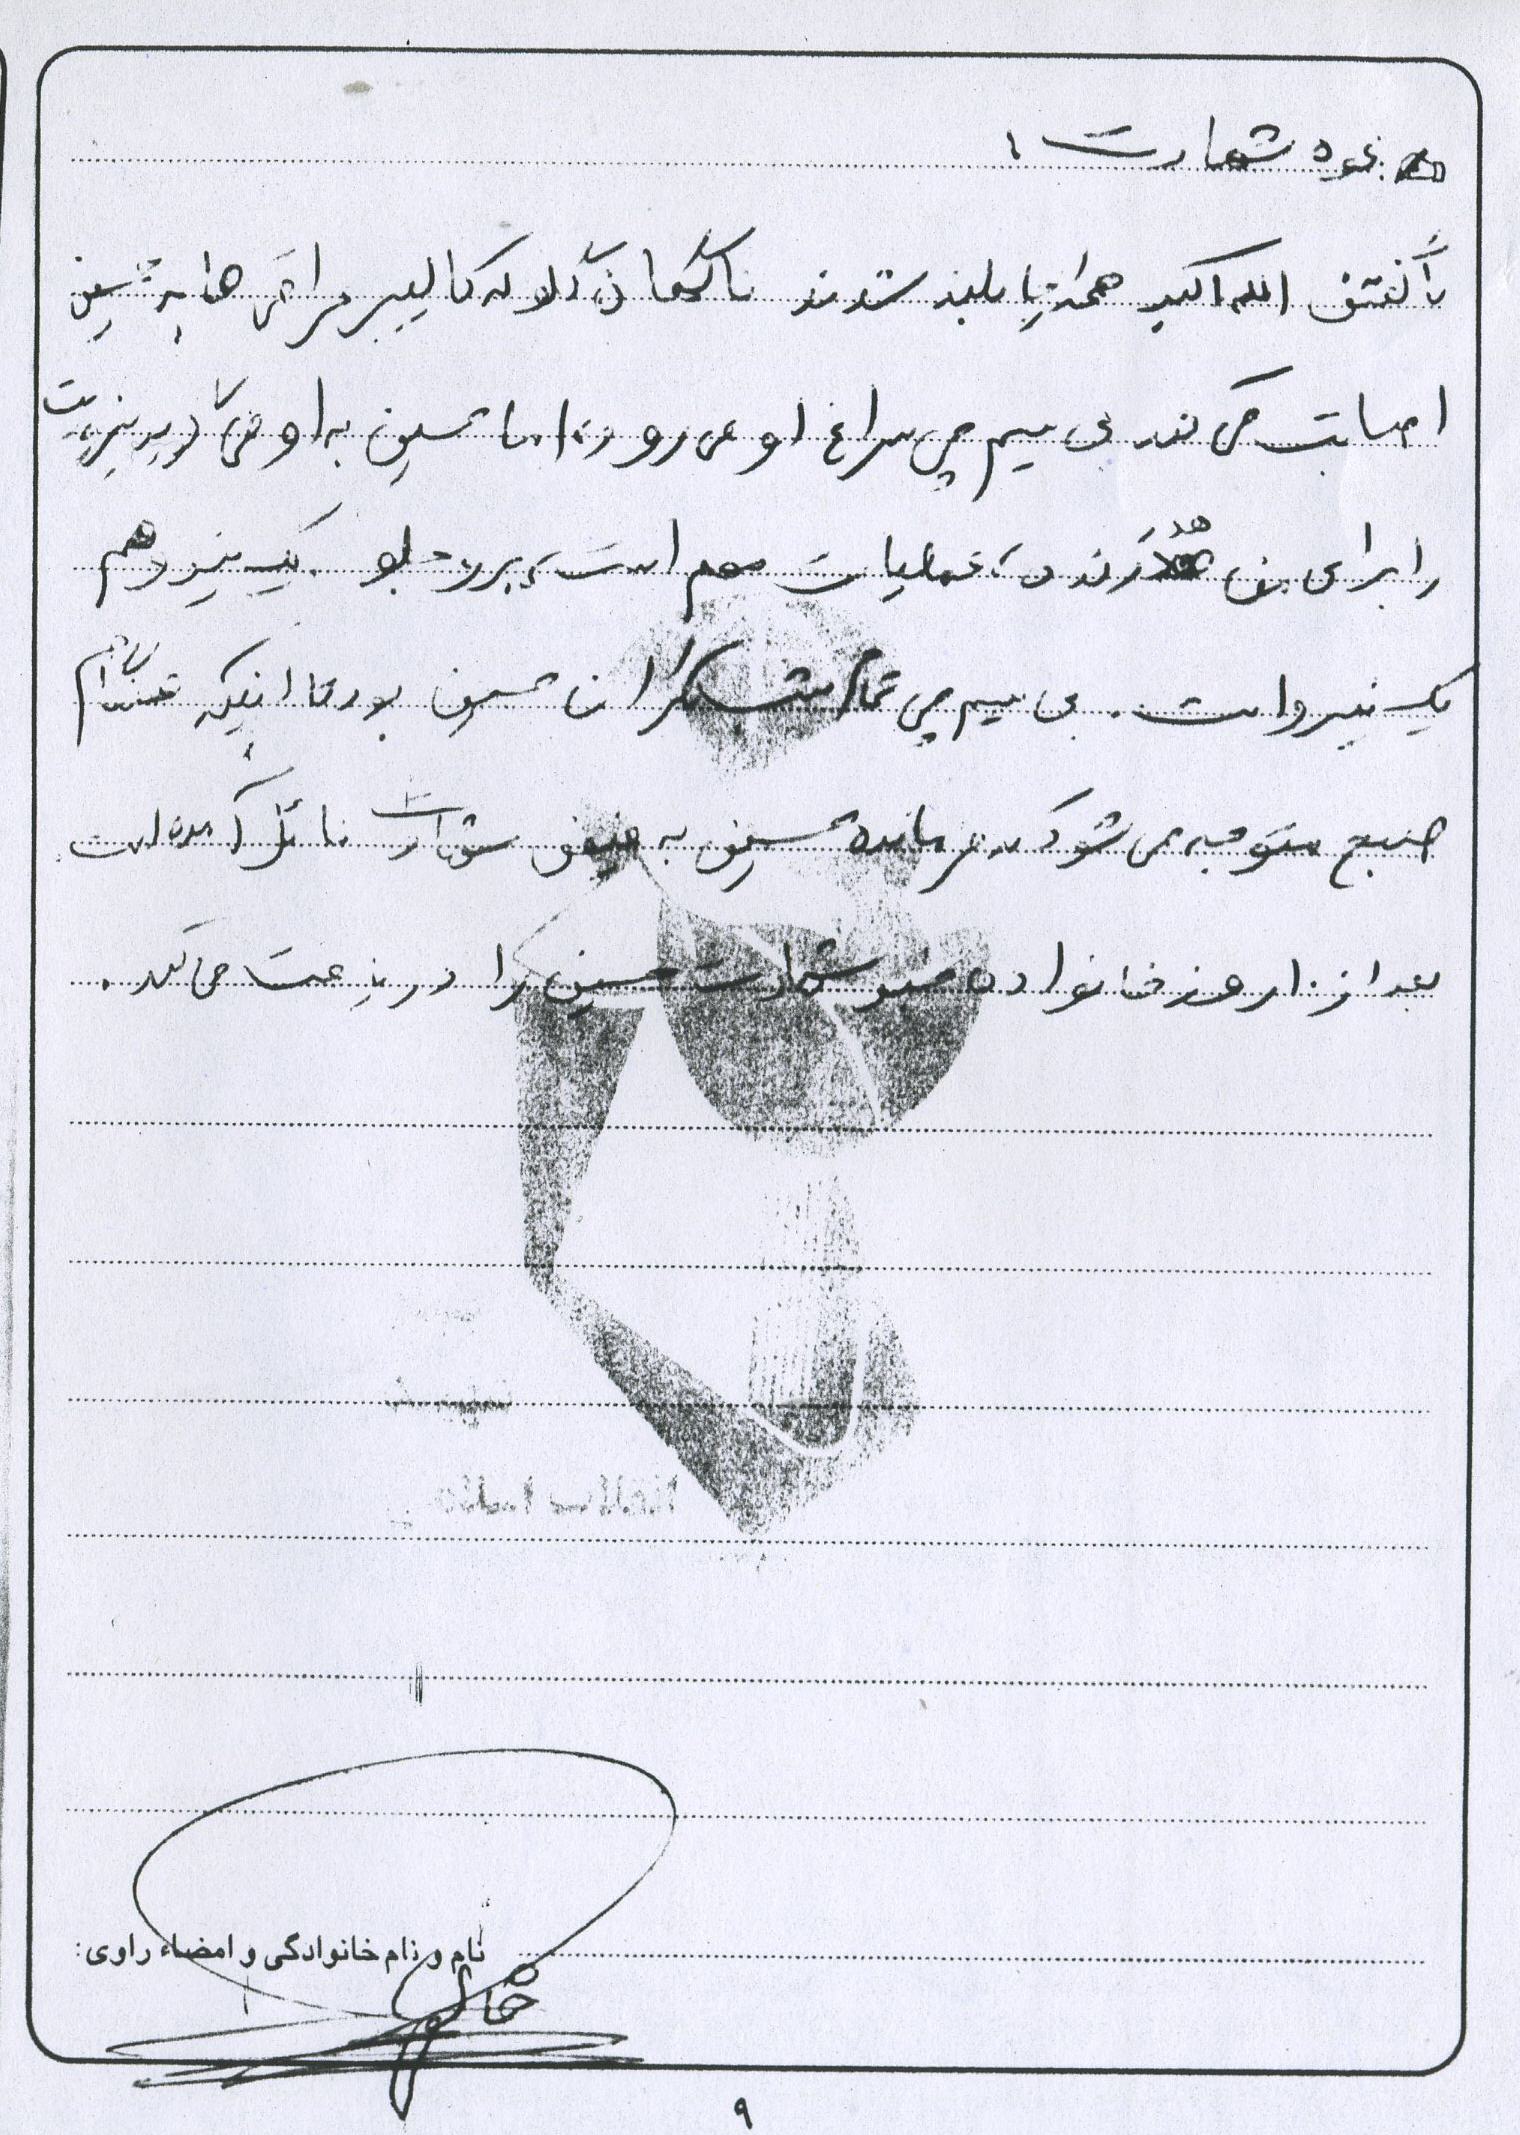 نحوه شهادت :
با گفتن الله اکبر همه از جا بلند شدند ناگهان گلوله کالیبر عراقی ها به حسین
اصابت می کند بی سیم چی سراغ او می رود، اما حسین به او می گوید نیرویت
را برای من هدر نده، عملیات مهم است، برو جلو . یک نیرو هم
یک نیرو است . بی سیم چی تمام شب نگران حسین بود تا اینکه هنگام
صبح متوجه می شود که فرمانده حسین به فیض شهادت نائل آمده است
بعد از ۱۰ روز خانواده خبر شهادت حسین را دریافت می کند .
نام و نام خانوادگی و امضاء راوی:
۹